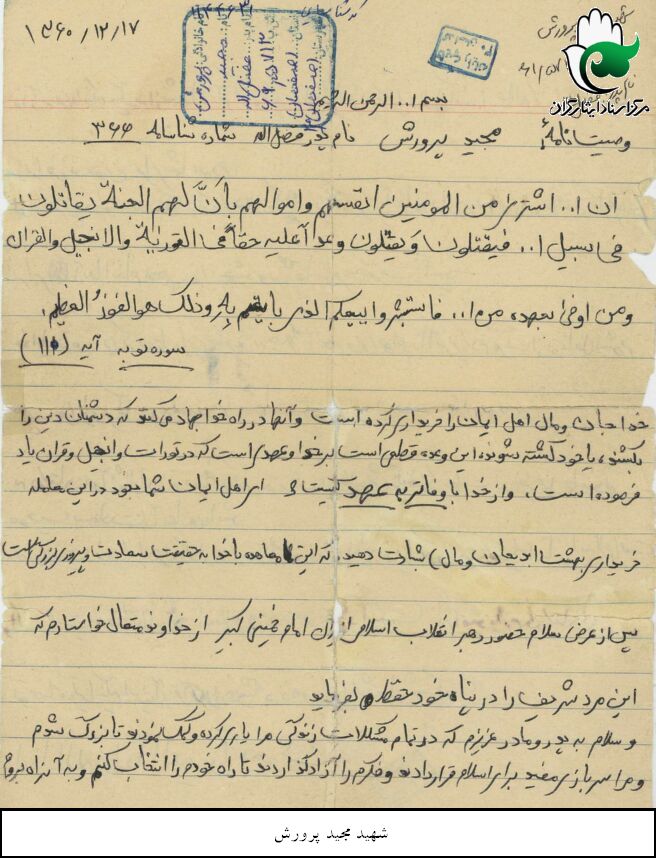 ۱۳۶۰/۱۲/۱۷
پرورش
مرکز اسناد ایثارگران
بسم ا.. الرحمن الرحیم
وصیتنامهٔ مجید پرورش نام پدر فضل اله شماره شناسنامه ۳۶۶
ان ا.. اشتری من المومنین انفسهم و اموالهم بانَّ لهم الجنة یقاتلون
فی سبیل ا.. فیقتلون وَ یقتلون وعداً علیه حقاً فی التوریة والانجیل والقران
ومن اوفی بعهده من ا.. فاستبشروا ببیعکم الذی بایعتم بِه وذلک هوالفوزُ العظیم.
سوره توبه آیه (۱۱۱)
خدا جان ومال اهل ایمان را خریداری کرده است و آنها در راه خدا جهاد می کنند که دشمنان دین را
بکشند، یا خود کشته شوند، این وعده قطعی است بر خدا و عهدی است که در تورات و انجیل و قران یاد
فرموده است، و از خدا با وفاتر به عهد کیست؟ ای اهل ایمان شما بخود در این معامله
خریداری بهشت ابد بجان و مال) بشارت دهید، که این معاهده با خدا به حقیقت سعادت و پیروزی بزرگی است
پس از عرض سلام حضور رهبر انقلاب اسلامی ایران امام خمینی کبیر از خداوند متعال خواستارم که
این مرد شریف را در پناه خود حفظ بفرماید
و سلام به پدر و مادر عزیزم که در تمام مشکلات زندگی مرا یاری کرده و کمک نمودند تا بزرگ شوم
و مرا سربازی مفید برای اسلام قرار دادند و فکرم را آزاد گذاردند تا راه خودم را انتخاب کنم و به آن راه بروم
شهید مجید پرورش